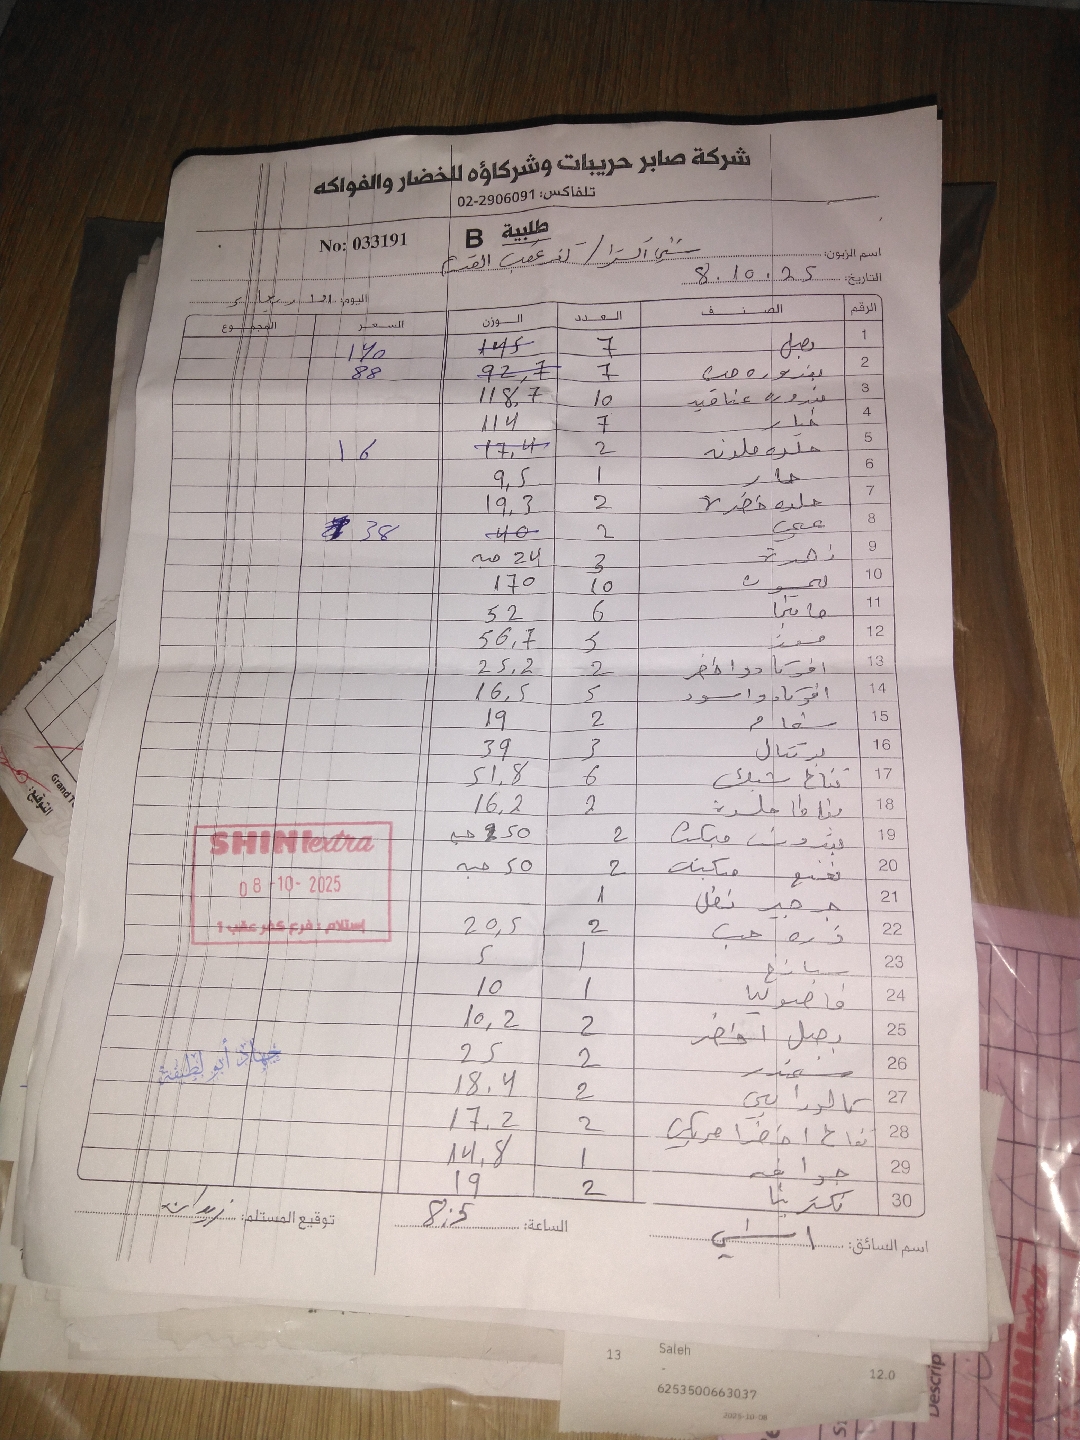 شركة صابر حريبات وشركاؤه للخضار والفواكه
تلفاكس: 02-2906091
طلبية B No: 033191
اسم الزبون: شني اكسترا / كفر عقب القدس
التاريخ: 8.10.25
اليوم: الاربعاء
الرقم الصنف العدد الوزن السعر المجموع
1 بصل 7 145 140
2 بندوره حب 7 92,7 88
3 بندوره عناقيد 10 118,7
4 خيار 7 114
5 حلوه ملونه 2 17,4 16
6 حار 1 9,5
7 حلوه خضرا 2 19,3
8 2 40 38
9 زهرة 3 24 حبه
10 ليمون 10 170
11 مانجا 6 52
12 موز 3 56,7
13 افوكادو اخضر 2 25,2
14 افوكادو اسود 5 16,5
15 شمام 2 19
16 برتقال 3 39
17 تفاح 6 51,8
18 بطاطا حلوة 2 16,2
19 بقدونس مكبس 2 50 حبه
20 نعنع 2 50 حبه
21 جرجير 1
22 ذره حب 2 20,5
23 سبانخ 1 5
24 فاصوليا 1 10
25 بصل اخضر 2 10,2
26 شمندر 2 25
27 كالورابي 2 18.4
28 تفاح اخضر امريكي 2 17.2
29 جوافه 1 14,8
30 نكترينا 2 19
SHINI extra
08-10-2025
إستلام: فرع كفر عقب 1
جهاد أبو لطيفة
اسم السائق:
الساعة: 8:5
توقيع المستلم:
Grand T
التوقيع:
13 Saleh 12.0
-
6253500663037
2025-10-08
Descrip